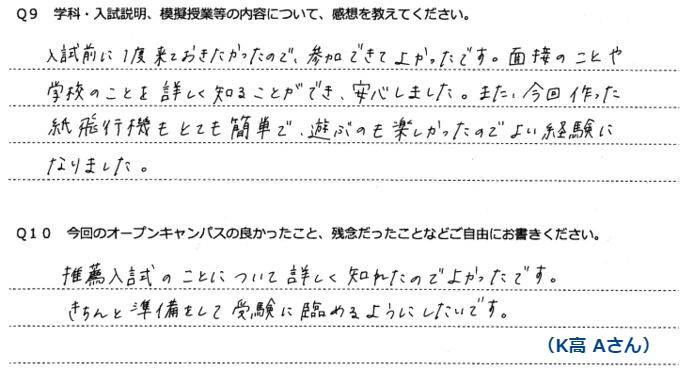 Q9　学科・入試説明、模擬授業等の内容について、感想を教えてください。
入試前に1度来ておきたかったので、参加できてよかったです。面接のことや
学校のことを詳しく知ることができ、安心しました。また、今回作った
紙飛行機もとても簡単で、遊ぶのも楽しかったのでよい経験に
なりました。
Q10　今回のオープンキャンパスの良かったこと、残念だったことなどご自由にお書きください。
推薦入試のことについて詳しく知れたのでよかったです。
きちんと準備をして受験に臨めるようにしたいです。
（K高 Aさん）